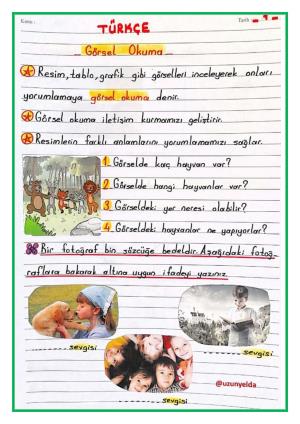 Konu :
Tarih : - 1 -
TÜRKÇE
Görsel Okuma
Resim, tablo, grafik gibi görselleri inceleyerek onları
yorumlamaya görsel okuma denir.
Görsel okuma iletişim kurmamızı geliştirir.
Resimlerin farklı anlamlarını yorumlamamızı sağlar.
1. Görselde kaç hayvan var?
2. Görselde hangi hayvanlar var?
3. Görseldeki yer neresi olabilir?
4. Görseldeki hayvanlar ne yapıyorlar?
Bir fotoğraf bin sözcüğe bedeldir. Aşağıdaki fotoğ-
raflara bakarak altına uygun ifadeyi yazınız.
sevgisi
sevgisi
sevgisi
@uzunyelda